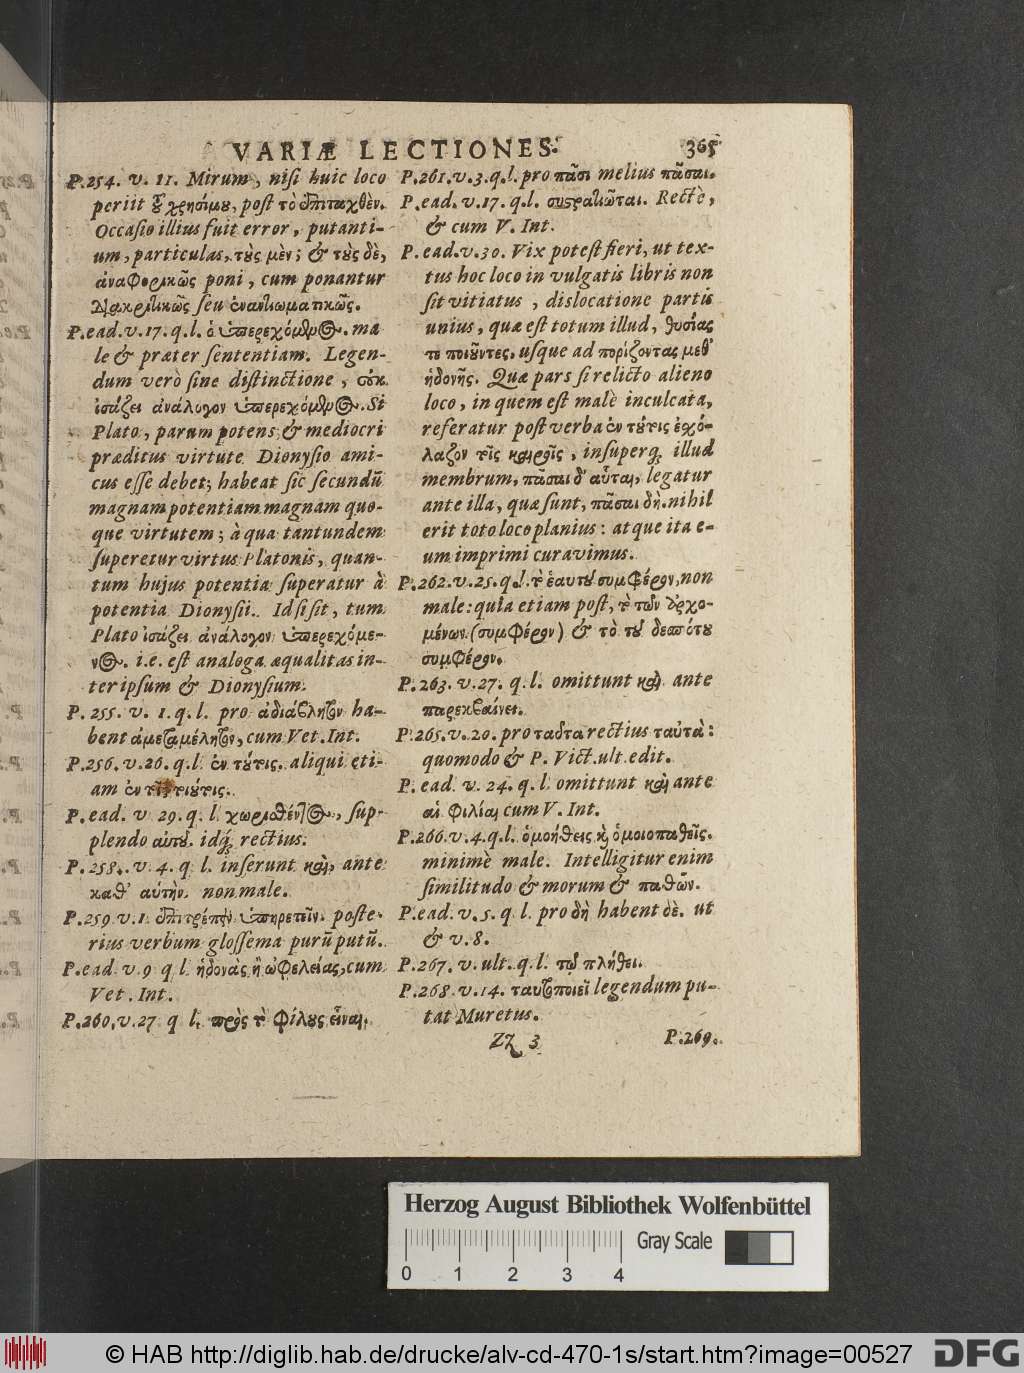 VARIÆ LECTIONES. 365
P. 254. v. 11. Mirum, nisi huic loco
periit τοῦ χρησίμου, post τὸ ἐπιταχθὲν.
Occasio illius fuit error, putanti-
um, particulas, τοὺς μὲν; & τοὺς δὲ,
ἀναφορικῶς poni, cum ponantur
διακριτικῶς seu ἐναντιωματικῶς.
P. ead. v. 17. q. l. ὁ ὑπερεχόμενος. ma
le & præter sententiam. Legen-
dum verò sine distinctione, οὐκ
ἰσάζει ἀνάλογον ὑπερεχόμενος. Si
Plato, parum potens & mediocri
præditus virtute Dionysio ami-
cus esse debet; habeat sic secundū
magnam potentiam magnam quo-
que virtutem; à qua tantundem
superetur virtus Platonis, quan-
tum hujus potentia superatur à
potentia Dionysii. Id si sit, tum
Plato ἰσάζει ἀνάλογον ὑπερεχόμε-
νος. i.e. est analoga æqualitas in-
ter ipsum & Dionysium.
P. 255. v. 1. q. l. pro ἀδιάβλητον ha-
bent ἀμεταμέλητον, cum Vet. Int.
P. 256. v. 26. q. l. ἐν τούτοις. aliqui eti-
am ἐν τοῖς τοιούτοις.
P. ead. v 29. q. l. χωρισθέντος, sup-
plendo αὐτοῦ. idq́; rectius.
P. 258. v. 4. q. l. inserunt καὶ, ante
καθ' αὑτὴν. non male.
P. 259 v. 1. ἐπιτρέπειν ὑπηρετεῖν. poste-
rius verbum glossema purū putū.
P. ead. v. 9 q l. ἡδονὰς ἢ ὠφελείας, cum
Vet. Int.
P. 260. v. 27 q l. πρὸς τὸ φίλους εἶναι.
P. 261. v. 3. q. l. pro πᾶσι melius πᾶσαι.
P. ead. v. 17. q. l. συστρατιῶται. Rectè,
& cum V. Int.
P. ead. v. 30. Vix potest fieri, ut tex-
tus hoc loco in vulgatis libris non
sit vitiatus, dislocatione partis
unius, quæ est totum illud, θυσίας
τε ποιοῦντες, usque ad πορίζοντας μεθ'
ἡδονῆς. Quæ pars si relicto alieno
loco, in quem est malè inculcata,
referatur post verba ἐν τούτοις ἐσχό-
λαζον τοῖς καιροῖς, insuperq; illud
membrum, πᾶσαι δ' αὗται, legatur
ante illa, quæ sunt, πᾶσαι δὴ. nihil
erit toto loco planius: atque ita e-
um imprimi curavimus.
P. 262. v. 25. q. l. τὸ ἑαυτοῦ συμφέρον, non
male: quia etiam post, τὸ τῶν ἀρχο-
μένων (συμφέρον) & τὸ τοῦ δεσπότου
συμφέρον.
P. 263. v. 27. q. l. omittunt καὶ ante
παρεκβαίνει.
P. 265. v. 20. pro ταῦτα rectius ταὐτὰ:
quomodo & P. Vict. ult. edit.
P. ead. v. 24. q. l omittunt καὶ ante
αἱ φιλίαι cum V. Int.
P. 266. v. 4. q. l. ὁμοήθεις καὶ ὁμοιοπαθεῖς.
minimè male. Intelligitur enim
similitudo & morum & παθῶν.
P. ead. v. 5. q. l. pro δὴ habent δὲ. ut
& v. 8.
P. 267. v. ult. q. l. τῷ πλήθει.
P. 268. v. 14. ταυτοποιεῖ legendum pu-
tat Muretus.
Zz 3 P. 269.
Herzog August Bibliothek Wolfenbüttel
Gray Scale
0 1 2 3 4
© HAB http://diglib.hab.de/drucke/alv-cd-470-1s/start.htm?image=00527 DFG